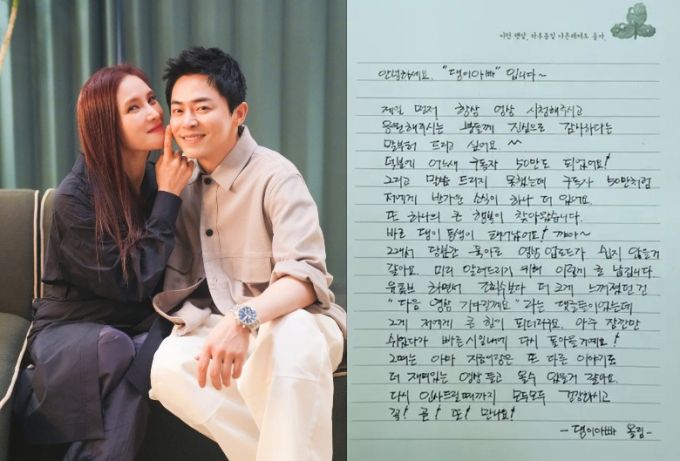 이런 맨날, 하루종일 나른해져도 좋아.
안녕하세요. "댐이아빠" 입니다~
제일 먼저 항상 영상 시청해주시고
응원해주시는 분들께 진심으로 감사하다는
말부터 드리고 싶어요 ^^
덕분에 어느새 구독자 50만도 되었어요!
그리고 말씀 드리지 못했는데 구독자 50만처럼
저에게 반가운 소식이 하나 더 있어요.
또 하나의 큰 행복이 찾아왔습니다.
바로 댐이 동생이 태어났어요! 꺄아~
그래서 당분간 육아로 영상 업로드가 쉽지 않을거
같아요. 미리 알려드리기 위해 이렇게 글 남깁니다.
유튜브 하면서 조회수보다 더 크게 느껴졌던 건
"다음 영상 기다릴게요" 라는 댓글들이었는데
그게 저에게 큰 힘이 되더라구요. 아주 잠깐만
쉬었다가 빠른시일내에 다시 돌아올게요!
그때는 아마 지금이랑은 또 다른 이야기로
더 재미있는 영상 들고 올수 있을거 같아요.
다시 인사드릴때까지 모두모두 건강하시고
꼭! 꼭! 또! 만나요!
- 댐이아빠 올림 -